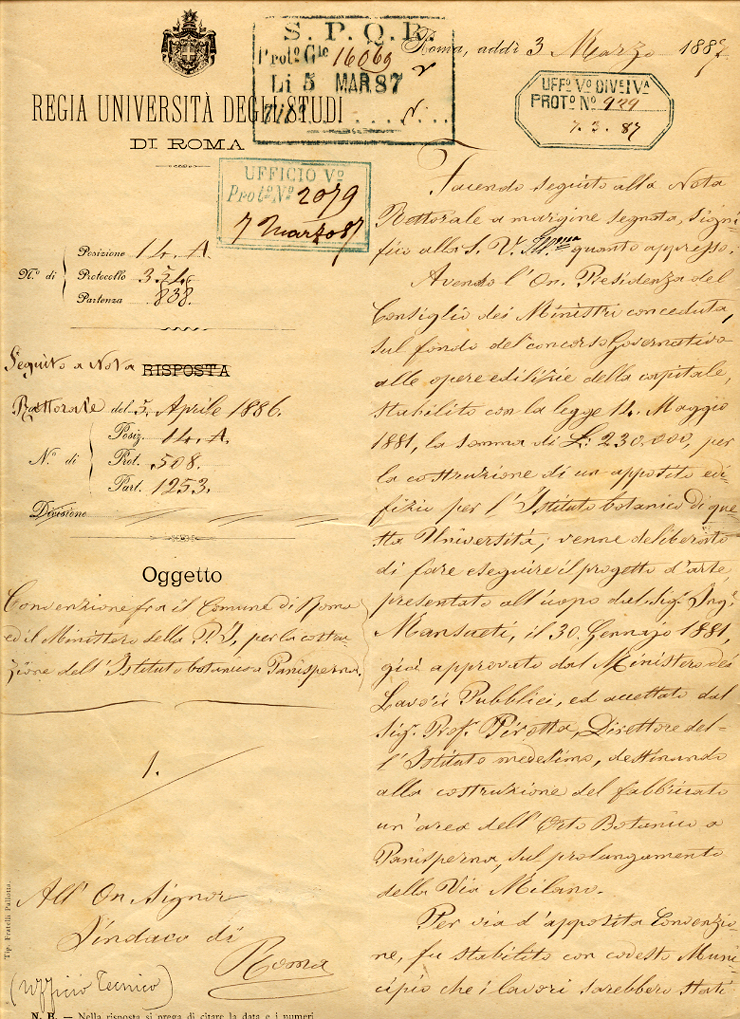 S. P. Q. R.
Protº Gle 16069
Li 5 MAR. 87
Titº
Roma, addì 3 Marzo 1887
UFFº Vº DIVe IVA
PROTº Nº 929
7. 3. 87
REGIA UNIVERSITÀ DEGLI STUDI
DI ROMA
UFFICIO Vº
Protº Nº 2079
7 Marzo 87
Posizione 14. A
N.º di Protocollo 324
Partenza 838.
Seguito a Nota RISPOSTA
Rettorale del 5. Aprile 1886.
Posiz. 14. A.
N.º di Prot. 508.
Part. 1253.
Divisione
Oggetto
Convenzione fra il Comune di Roma
ed il Ministero della P. I, per la costru-
zione dell'Istituto botanico a Panisperna.
1.
All' On. Signor
Sindaco di
Roma
(Ufficio Tecnico)
Tip. Fratelli Pallotta.
N. B. — Nella risposta si prega di citare la data e i numeri
Facendo seguito alla Nota
Rettorale a margine segnata, signi-
fico alla S. V. Illma quanto appresso.
Avendo l'On. Presidenza del
Consiglio dei Ministri conceduta,
sul fondo del concorso Governativo
alle opere edilizie della capitale,
stabilito con la legge 14. Maggio
1881, la somma di L: 230.000, per
la costruzione di un apposito edi-
fizio per l'Istituto botanico di que-
sta Università; venne deliberato
di fare eseguire il progetto d'arte
presentato all'uopo dal Sig. Ing.
il 30. Gennajo 1881,
già approvato dal Ministero dei
Lavori Pubblici, ed accettato dal
Sig. Prof. Pirotta, Direttore del-
l'Istituto medesimo, destinando
alla costruzione del fabbricato
un'area dell'Orto Botanico a
Panisperna, sul prolungamento
della Via Milano.
Per via d'apposita Convenzio-
ne, fu stabilito con codesto Muni-
cipio che i lavori sarebbero stati